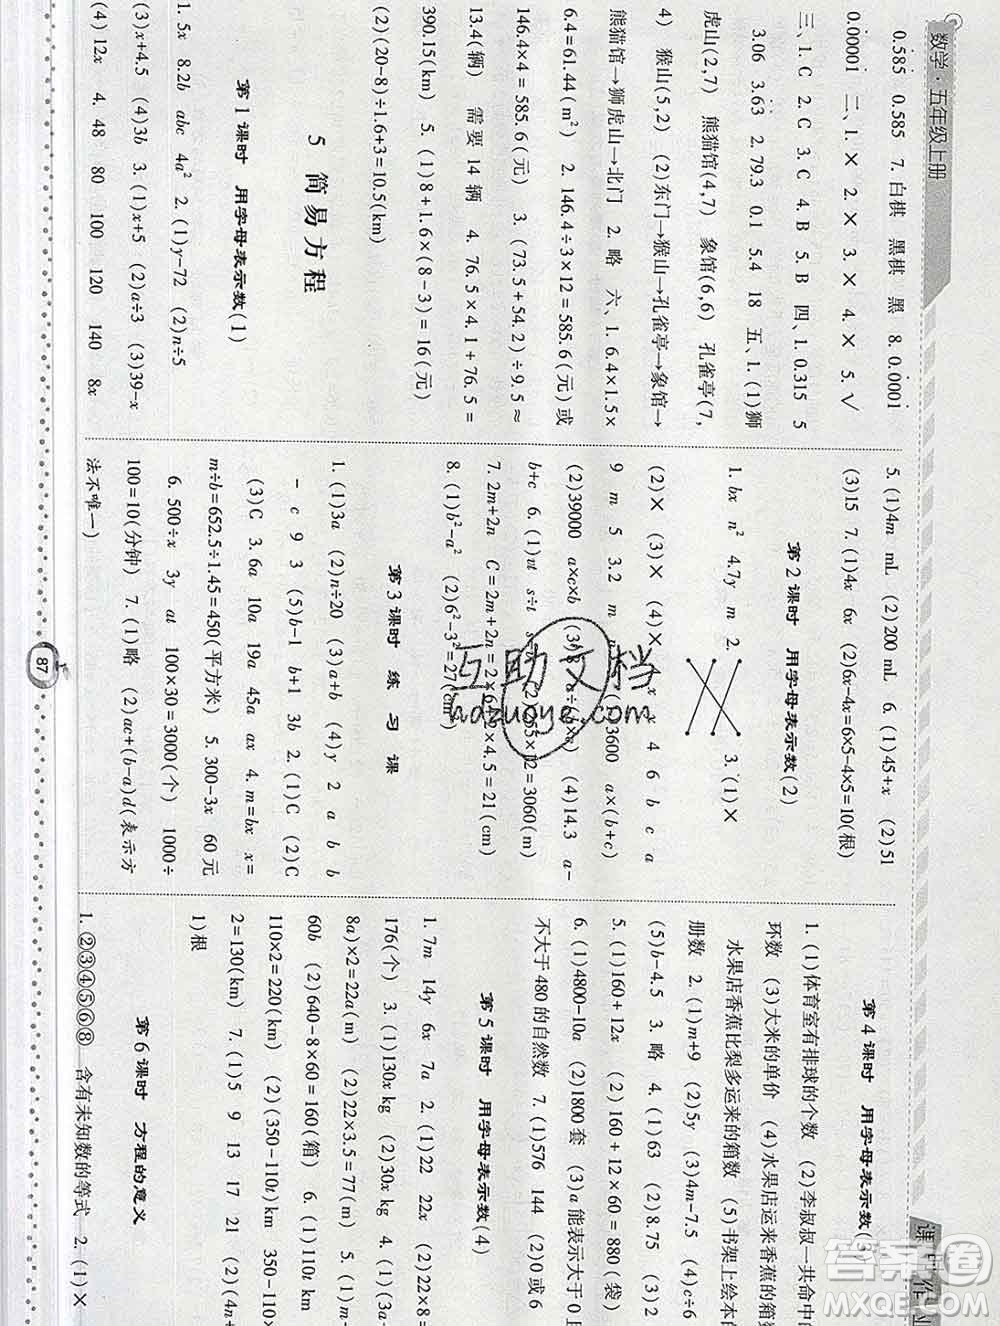 数学·五年级上册
0.5̇85̇ 0.585 7. 白棋 黑棋 黑 8. 0.0001̇
0.00001̇ 二、1. × 2. × 3. × 4. × 5. √
三、1. C 2. C 3. C 4. B 5. B 四、1. 0.315 5
3.06 3.6̇3̇ 2. 79.3 0.1 5.4 18 五、1. (1)狮
虎山(2,7) 熊猫馆(4,7) 象馆(6,6) 孔雀亭(7,
4) 猴山(5,2) (2)东门→猴山→孔雀亭→象馆→
熊猫馆→狮虎山→北门 2. 略 六、1. 6.4×1.5×
6.4=61.44(m²) 2. 146.4÷3×12=585.6(元)或
146.4×4=585.6(元) 3. (73.5+54.2)÷9.5≈
13.4(辆) 需要14辆 4. 76.5×4.1+76.5=
390.15(km) 5. (1)8+1.6×(8-3)=16(元)
(2)(20-8)÷1.6+3=10.5(km)
5 简易方程
第1课时 用字母表示数(1)
1. 5x 8.2b abc 4a² 2. (1)y-72 (2)n÷5
(3)x+4.5 (4)3b 3. (1)x+5 (2)a÷3 (3)39-x
(4)12x 4. 48 80 100 120 140 8x
5. (1)4m mL (2)200 mL 6. (1)45+x (2)51
(3)15 7. (1)4x 6x (2)6x-4x=6×5-4×5=10(根)
第2课时 用字母表示数(2)
1. bx n² 4.7y m 2. 3. (1)×
(2)× (3)× (4)× 4. x x 4 6 b c a
9 m 5 3.2 m (1)3600 a×(b+c)
(2)39000 a×c×b (3)8 (4)14.3 a-
b+c 6. (1)vt s÷t (2)255×12=3060(m)
7. 2m+2n C=2m+2n=2×6+2×4.5=21(cm)
8. (1)b²-a² (2)6²-3²=27(cm²)
第3课时 练习课
1. (1)3a (2)n÷20 (3)a+b (4)y 2 a b b
- c 9 3 (5)b-1 b+1 3b 2. (1)C (2)C
(3)C 3. 6a 10a 19a 45a ax 4. m=bx x=
m÷b=652.5÷1.45=450(平方米) 5. 300-3x 60元
6. 500÷x 3y at 100×30=3000(个) 1000÷
100=10(分钟) 7. (1)略 (2)ac+(b-a)d(表示方
法不唯一)
第4课时 用字母表示数(3)
1. (1)体育室有排球的个数 (2)李叔叔一共命中的
环数 (3)大米的单价 (4)水果店运来香蕉的箱
水果店香蕉比梨多运来的箱数 (5)书架上绘本的
册数 2. (1)m+9 (2)5m (3)4m-7.5 (4)m÷
(5)b-4.5 3. 略 4. (1)63 (2)8.75 (3)2
5. (1)160+12x (2)160+12×60=880(袋)
6. (1)4800-10a (2)1800套 (3)a能表示大于0且
不大于480的自然数 7. (1)576 144 (2)0或6
第5课时 用字母表示数(4)
1. 7m 14y 6x 7a 2. (1)22 22x (2)22×8=
176(个) 3. (1)130x kg (2)30x kg 4. (1)(3a+
8a)×2=22a(m) (2)22×3.5=77(m) 5. (1)
60b (2)640-8×60=160(箱) 6. (1)110x
110×2=220(km) (2)(350-110x)km 350-110×
2=130(km) 7. (1)5 9 13 17 21 (2)(4n+
1)根
第6课时 方程的意义
1. ②③④⑤⑥⑧ 含有未知数的等式 2. (1)×
87
互助文档
hdzuoye.com
答案圈
MXQE.COM